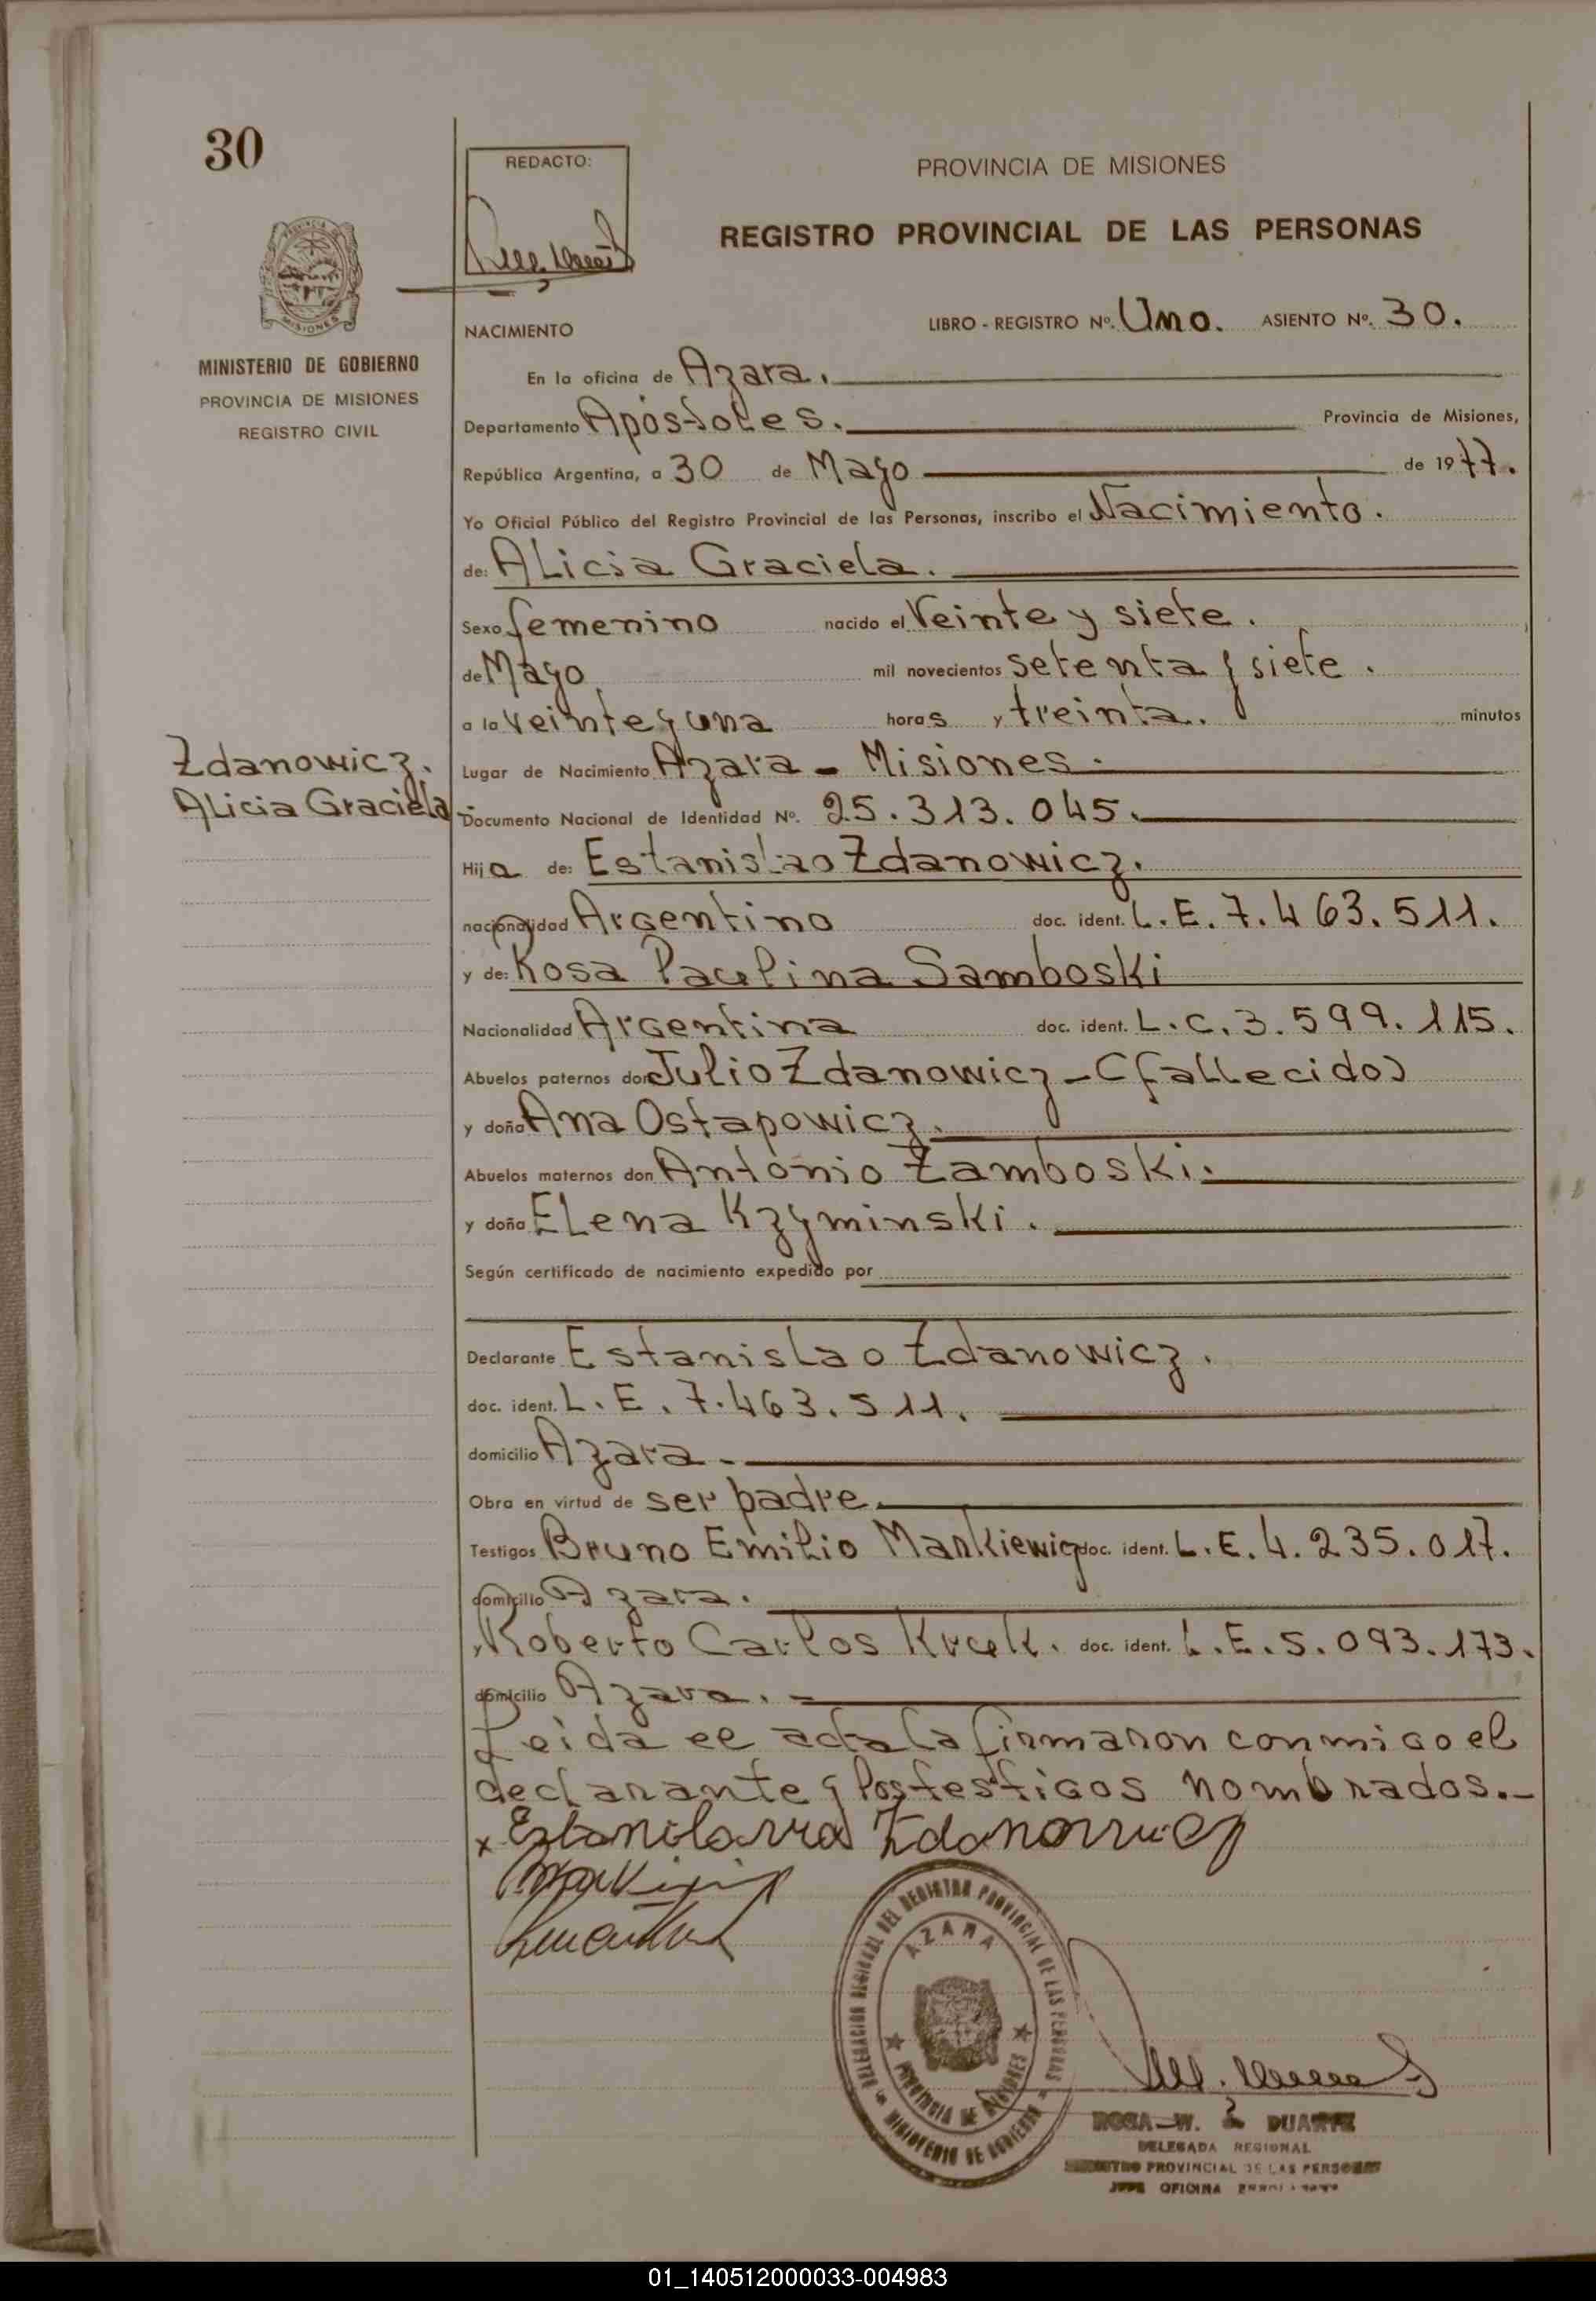 30
REDACTO:
PROVINCIA DE MISIONES
REGISTRO PROVINCIAL DE LAS PERSONAS
NACIMIENTO
LIBRO - REGISTRO Nº. Uno. ASIENTO Nº. 30.
MINISTERIO DE GOBIERNO
PROVINCIA DE MISIONES
REGISTRO CIVIL
En la oficina de Azara.
Departamento Apóstoles. Provincia de Misiones,
República Argentina, a 30 de Mayo de 1977.
Yo Oficial Público del Registro Provincial de las Personas, inscribo el Nacimiento.
de: Alicia Graciela.
Sexo femenino nacido el Veinte y siete.
de Mayo mil novecientos setenta y siete.
a la veinte y una horas y treinta. minutos
Zdanowicz.
Alicia Graciela
Lugar de Nacimiento Azara - Misiones.
Documento Nacional de Identidad Nº. 25.313.045.
Hija de: Estanislao Zdanowicz.
nacionalidad Argentino doc. ident. L.E. 7.463.511.
y de: Rosa Paulina Samboski
Nacionalidad Argentina doc. ident. L.C. 3.599.115.
Abuelos paternos don Julio Zdanowicz - (fallecido)
y doña Ana Ostapowicz.
Abuelos maternos don Antonio Zamboski.
y doña Elena Kzyminski.
Según certificado de nacimiento expedido por
Declarante Estanislao Zdanowicz.
doc. ident. L.E. 7.463.511.
domicilio Azara.
Obra en virtud de ser padre.
Testigos Bruno Emilio Mankiewicz doc. ident. L.E. 4.235.017.
domicilio Azara.
y Roberto Carlos Kruk. doc. ident. L.E. 5.093.173.
domicilio Azara.
Leida el acta la firmaron conmigo el
declarante y los testigos nombrados.-
x Estanislao Zdanowicz
DELEGACION REGIONAL DEL REGISTRO PROVINCIAL DE LAS PERSONAS
AZARA
PROVINCIA DE MISIONES
MINISTERIO DE GOBIERNO
ROSA W. DUARTE
DELEGADA REGIONAL
REGISTRO PROVINCIAL DE LAS PERSONAS
JEFE OFICINA
01_140512000033-004983